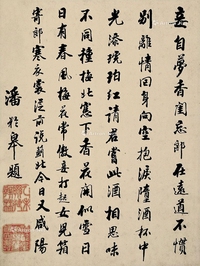 妾自夢香閨忘郎在遠道不慣
別離情回身向空抱淚墮酒杯中
光添琥珀紅請君嘗此酒相思味
不同種梅北窗下香花開似雪日
日有春風梅花常傲妾打起女兒箱
寄郎寒衣裳從前說薊北今日又咸陽
潘齡皋題